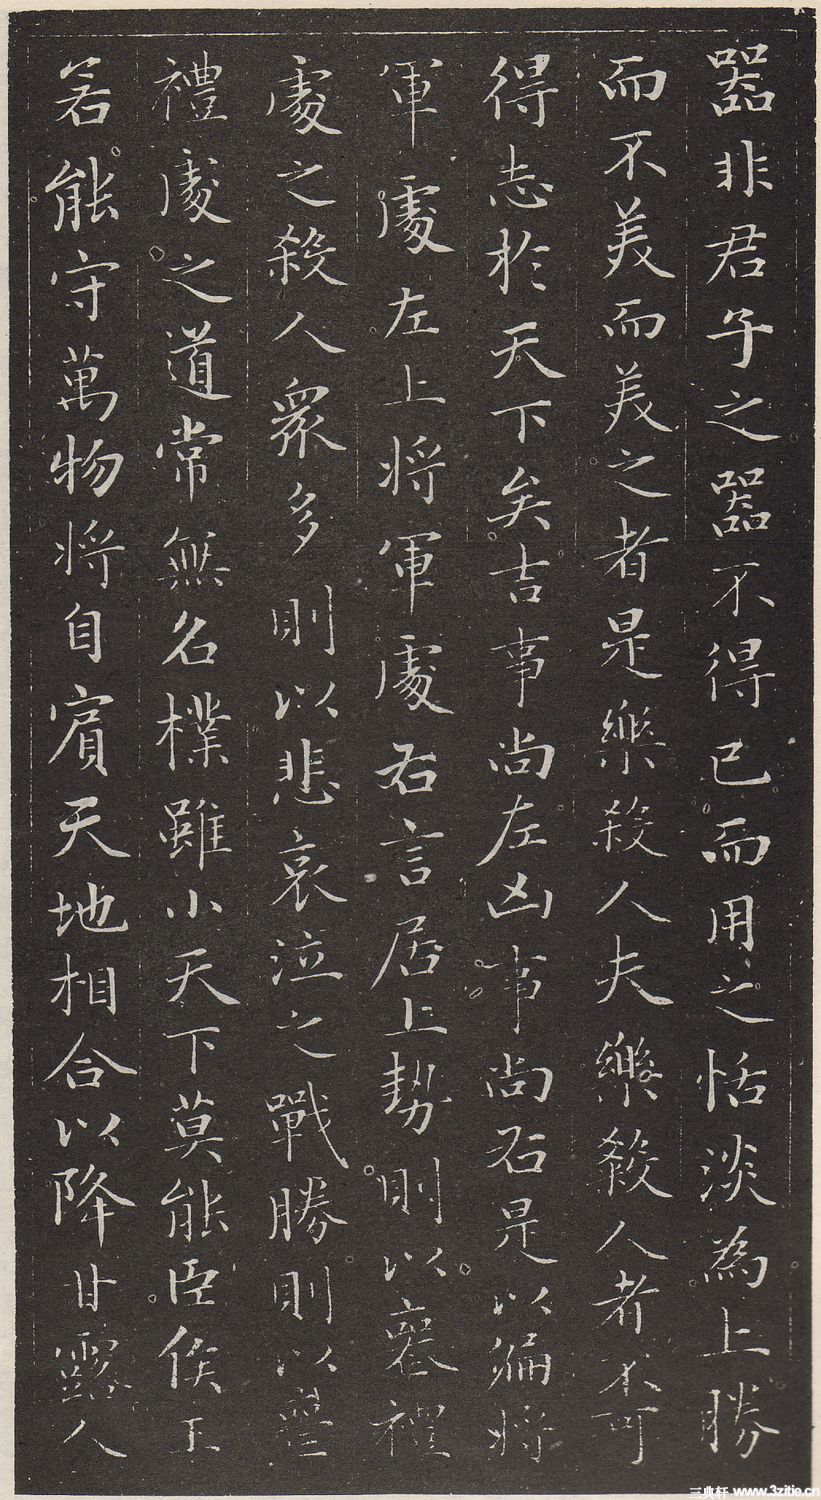 器非君子之器不得已而用之恬淡為上勝
而不美而美之者是樂殺人夫樂殺人者不可
得志於天下矣吉事尚左凶事尚右是以偏将
軍處左上将軍處右言居上勢則以喪禮
處之殺人衆多則以悲哀泣之戰勝則以喪
禮處之道常無名樸雖小天下莫能臣侯王
若能守萬物将自賓天地相合以降甘露人
三典轩 www.3zitie.cn